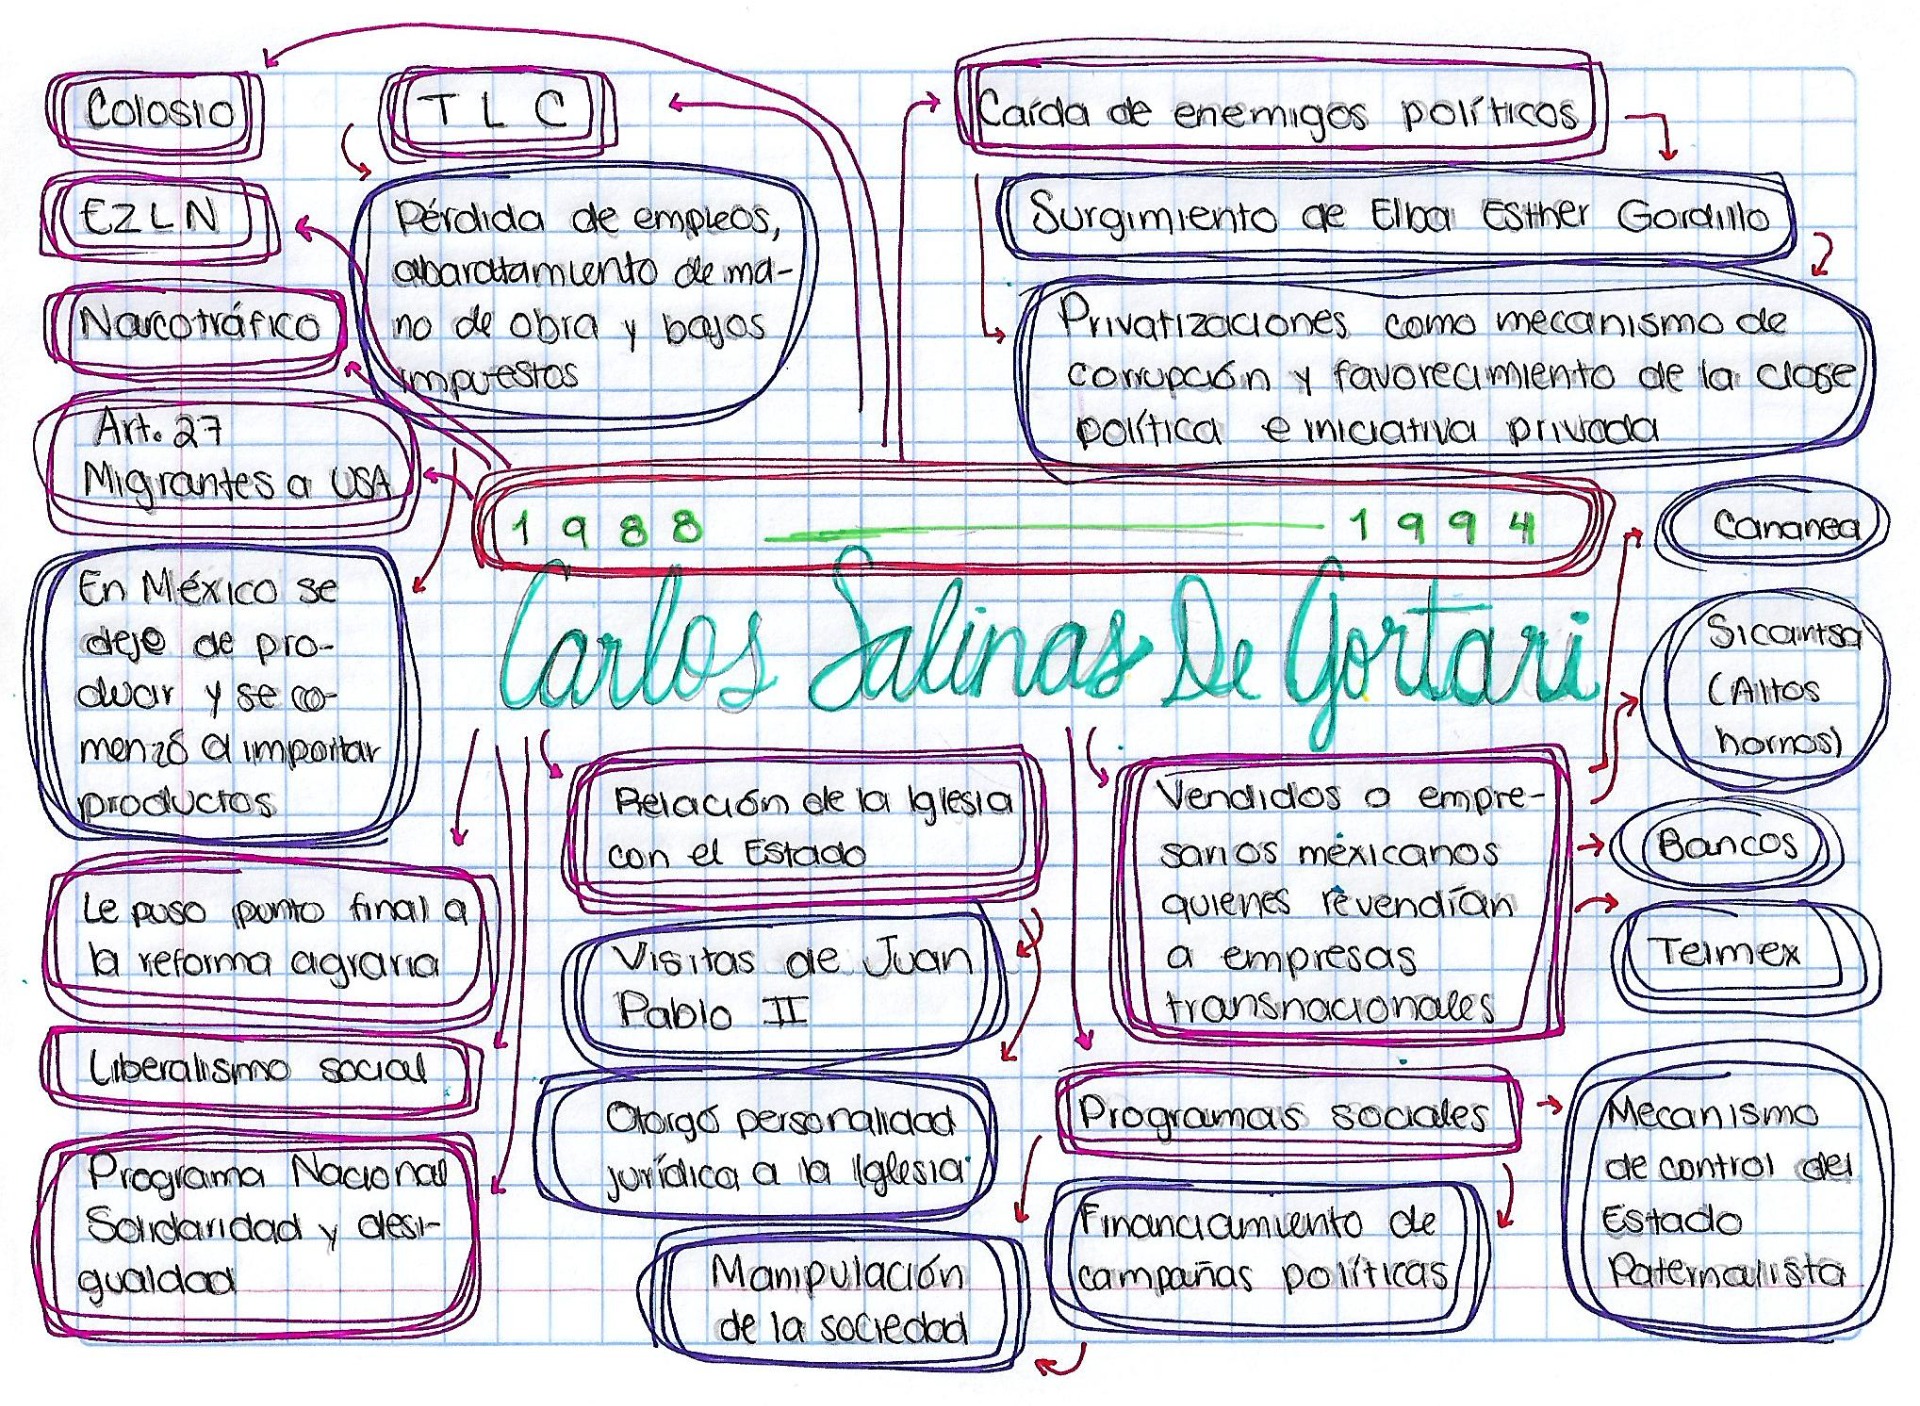 Colosio
T L C
Caída de enemigos políticos
EZLN
Pérdida de empleos,
abaratamiento de ma-
no de obra y bajos
impuestos
Surgimiento de Elba Esther Gordillo
Narcotráfico
Privatizaciones como mecanismo de
corrupción y favorecimiento de la clase
política e iniciativa privada
Art. 27
Migrantes a USA
1988 — 1994
Carlos Salinas De Gortari
Cananea
Sicartsa
(Altos
hornos)
En México se
deje de pro-
ducir y se co-
menzó a importar
productos
Relación de la Iglesia
con el Estado
Vendidos a empre-
sarios mexicanos
quienes revendían
a empresas
transnacionales
Bancos
Telmex
Le puso punto final a
la reforma agraria
Visitas de Juan
Pablo II
Liberalismo social
Otorgó personalidad
jurídica a la Iglesia
Programas sociales
Mecanismo
de control del
Estado
Paternalista
Programa Nacional
Solidaridad y desi-
gualdad
Financiamiento de
campañas políticas
Manipulación
de la sociedad